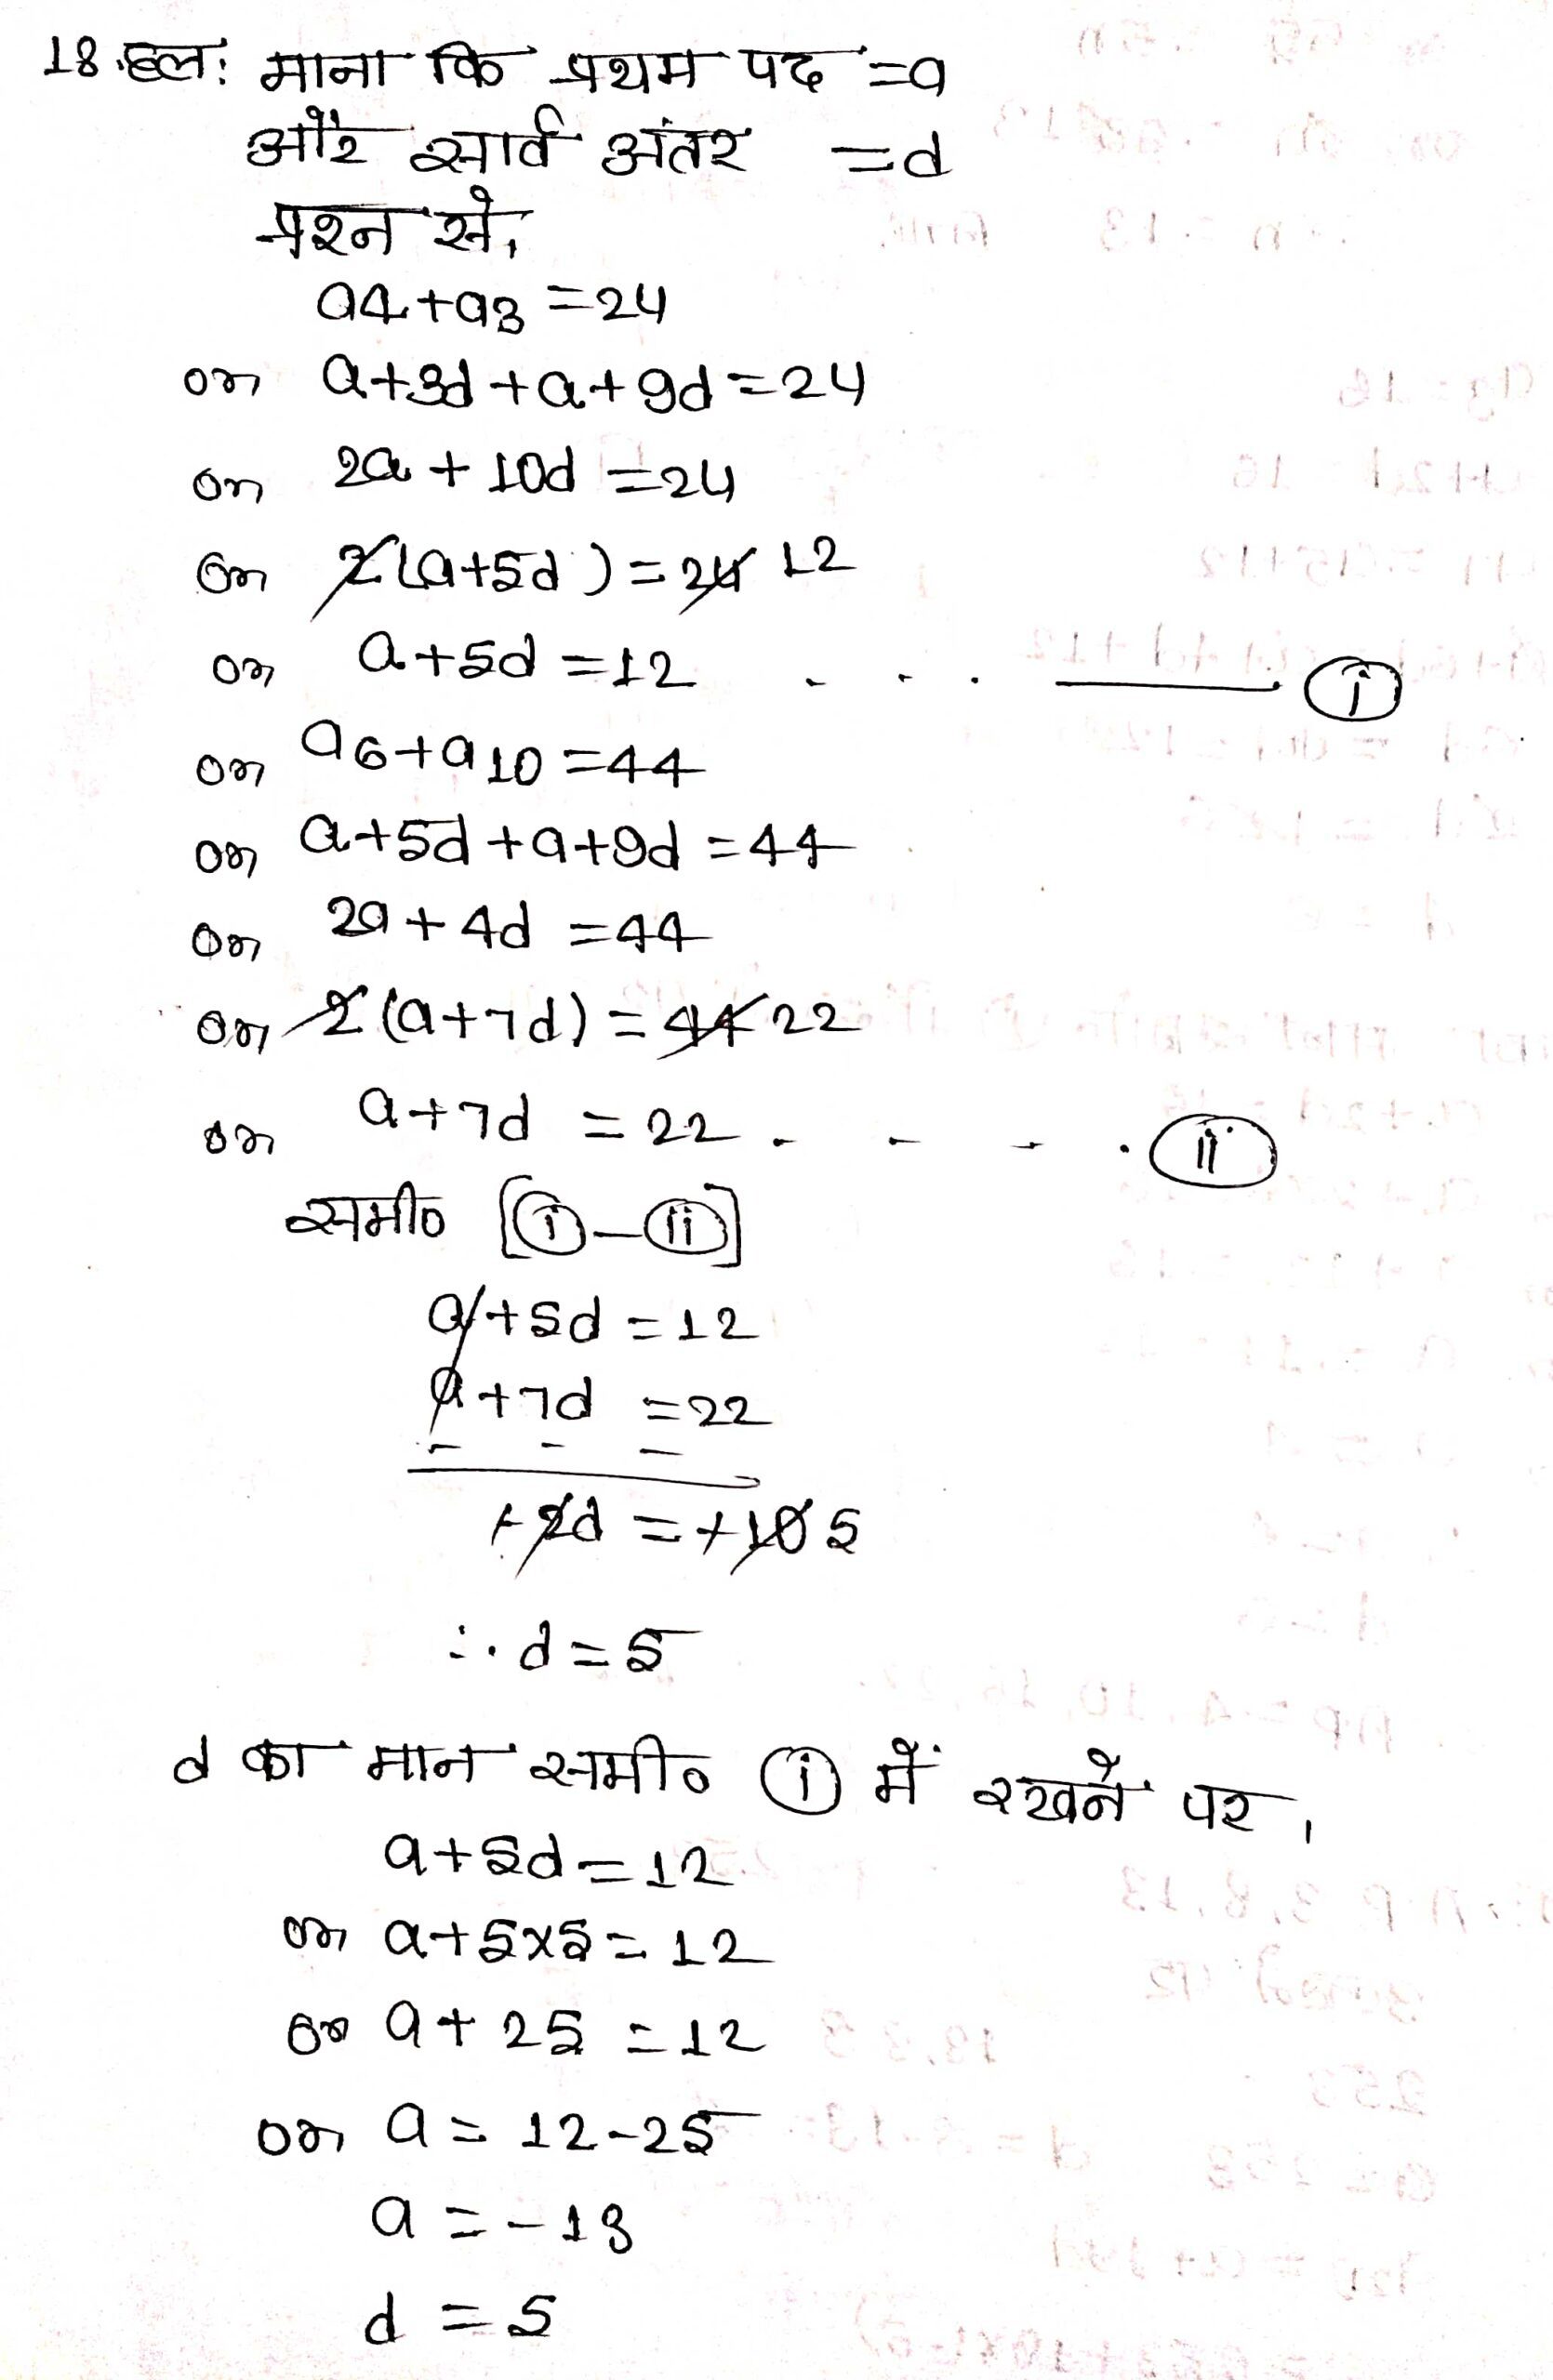 18. हल: माना कि प्रथम पद = a
और सार्व अंतर = d
प्रश्न से,
a4 + a3 = 24
or a+3d+a+9d = 24
or 2a + 10d = 24
or 2(a+5d) = 24 12
or a+5d = 12 . . . — (i)
or a6+a10 = 44
or a+5d+a+9d = 44
or 2a + 4d = 44
or 2(a+7d) = 44 22
or a+7d = 22 - - - . (ii)
समी० [(i) - (ii)]
a+5d = 12
a+7d = 22
- - -
+2d = +10 5
∴ d = 5
d का मान समी० (i) में रखने पर,
a+5d = 12
or a+5x5 = 12
or a+25 = 12
or a = 12-25
a = -13
d = 5